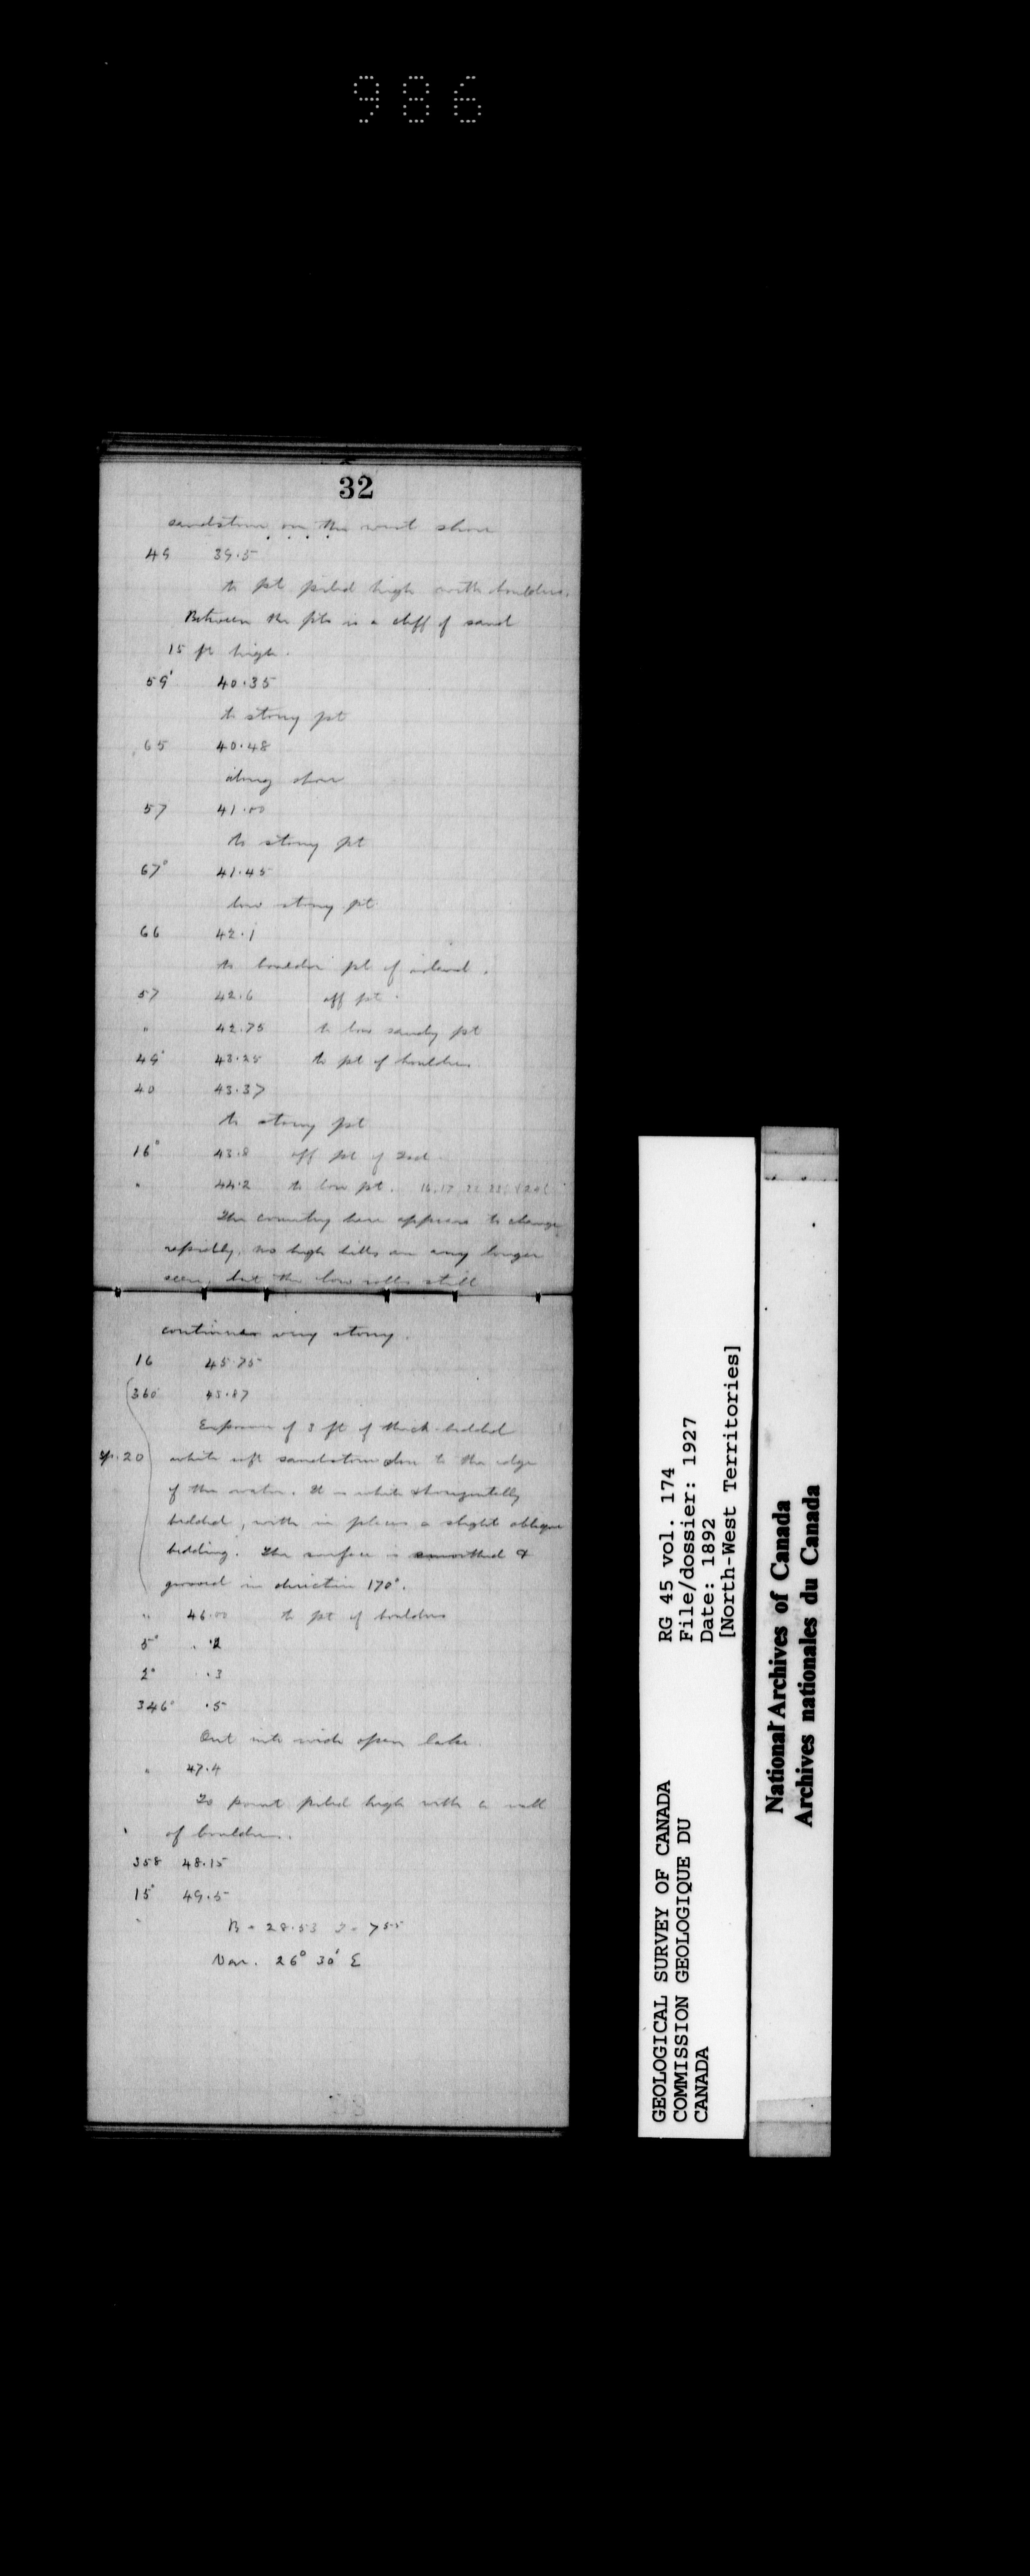 986
32
sandstone on the west shore
49 39.5
to pt piled high with boulders.
Between the pts is a cliff of sand
15 ft high.
59° 40.35
to stony pt
65 40.48
along shore
57 41.00
to stony pt
67° 41.45
low stony pt
66 42.1
to boulder pt of island.
57 42.6 off pt.
" 42.75 to low sandy pt
49° 43.25 to pt of boulders
40 43.37
to stony pt
16° 43.8 off pt of
" 44.2 to low pt.
The country here appears to change
rapidly, no high hills are any longer
seen, but the low still
continues very stony.
16 45.75
360 45.87
Exposure of 3 ft of thick bedded
20 white soft sandstone down to the edge
of the water. It is white & horizontally
bedded, with in places a slight oblique
bedding. The surface is smoothed &
grooved in direction 170°.
" 46.00 to pt of boulders
5° .2
2° .3
346° .5
Out into wide open lake.
" 47.4
To point piled high with a wall
of boulders.
358 48.15
15° 49.5
B = 28.53
Var. 26° 30' E
GEOLOGICAL SURVEY OF CANADA
COMMISSION GEOLOGIQUE DU
CANADA
RG 45 vol. 174
File/dossier: 1927
Date: 1892
[North-West Territories]
National Archives of Canada
Archives nationales du Canada